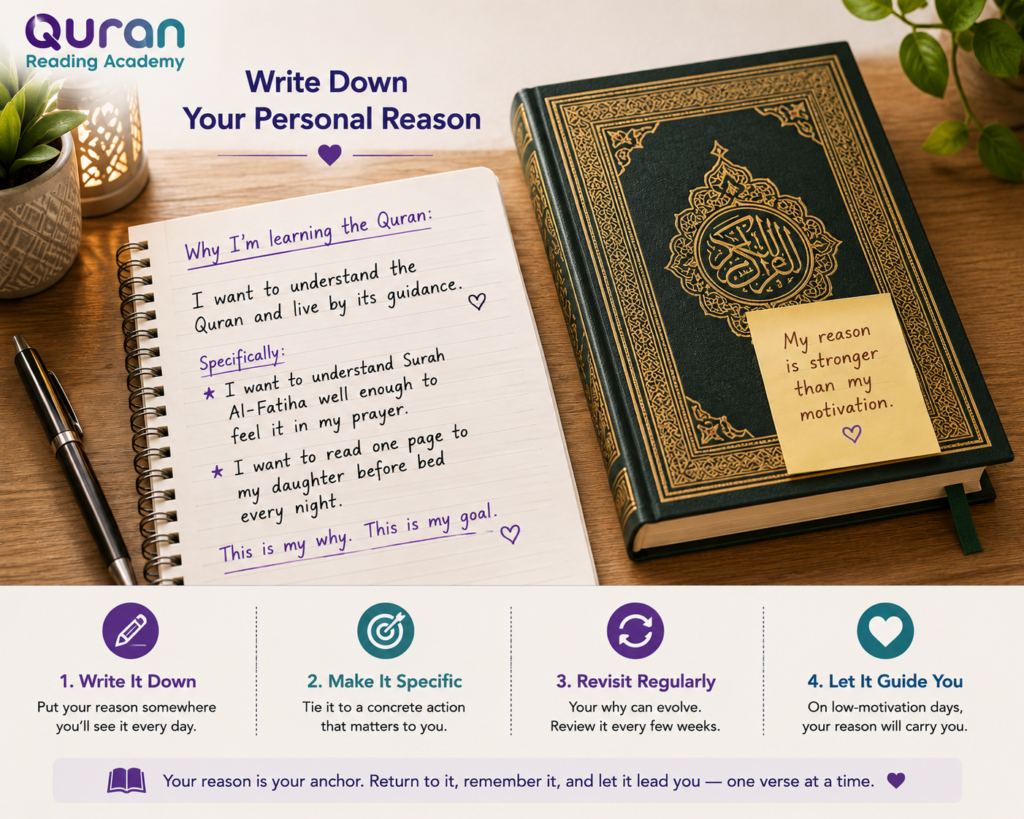 Quran
Reading Academy
Write Down
Your Personal Reason
Why I'm learning the Quran:
I want to understand the
Quran and live by its guidance.
Specifically:
★ I want to understand Surah
Al-Fatiha well enough to
feel it in my prayer.
★ I want to read one page to
my daughter before bed
every night.
This is my why. This is my goal.
القرآن الكريم
My reason
is stronger
than my
motivation.
1. Write It Down
Put your reason somewhere
you'll see it every day.
2. Make It Specific
Tie it to a concrete action
that matters to you.
3. Revisit Regularly
Your why can evolve.
Review it every few weeks.
4. Let It Guide You
On low-motivation days,
your reason will carry you.
Your reason is your anchor. Return to it, remember it, and let it lead you — one verse at a time.